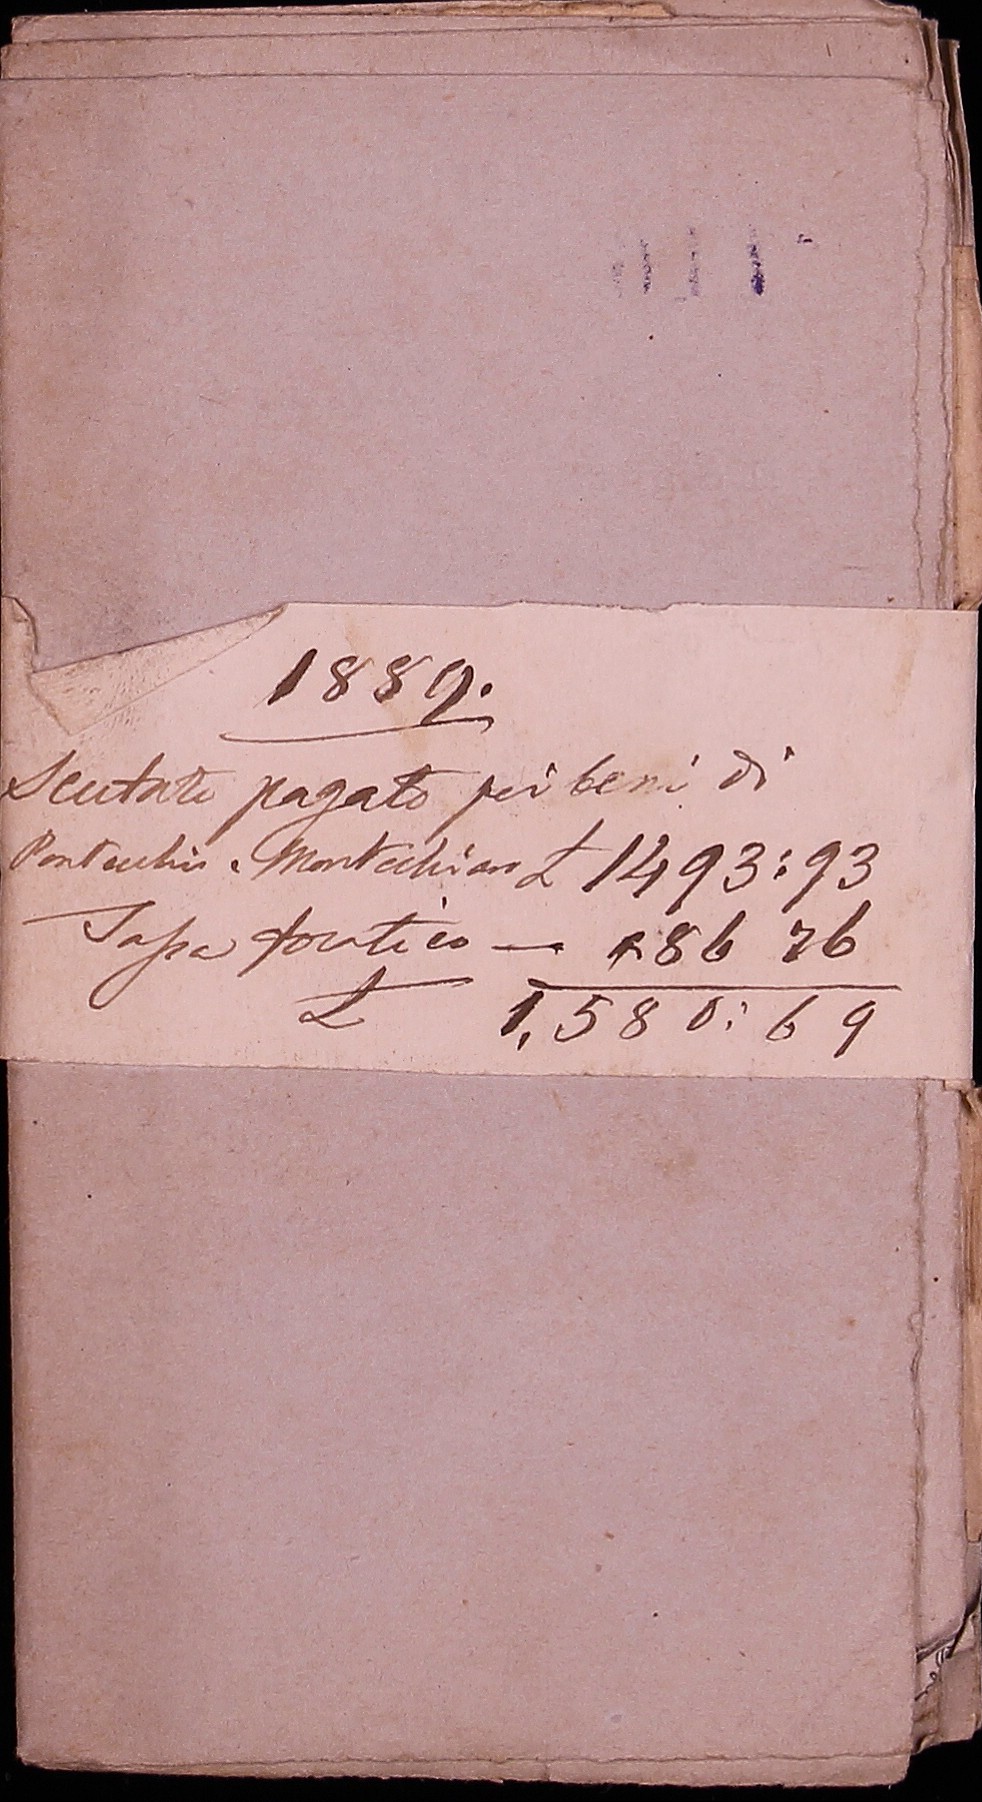 1889.
Scutato pagato pei beni di
Pontecchio e Montechiaro £ 1493:93
Tassa fuatico — 86 76
£ 1,580:69